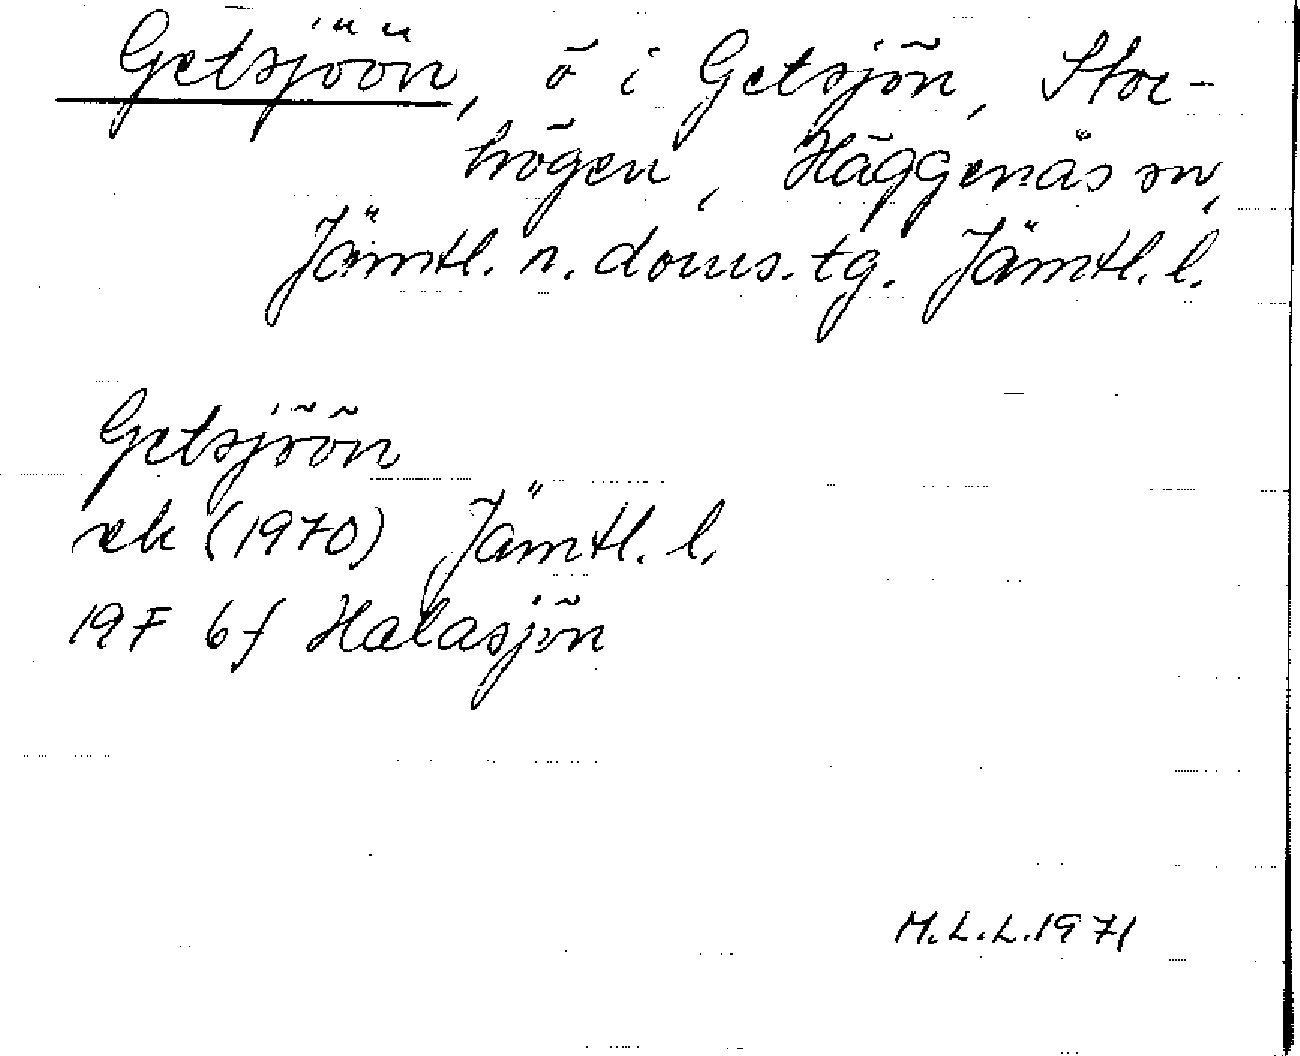 Getsjöön, ö i Getsjön, Stor-
högen, Häggenäs sn,
Jämtl. n. doms. tg. Jämtl. l.
Getsjöön
ek (1970) Jämtl. l.
19F 6f Halasjön
M.L.L. 1971